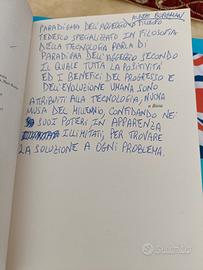 PARADIGMA DELL'APPARECCHIO FILOSOFO ALBERT BORGMANN
TEDESCO SPECIALIZZATO IN FILOSOFIA
DELLA TECNOLOGIA PARLA DI
PARADIGMA DELL'APPREZZO SECONDO
IL QUALE TUTTA LA POSITIVITÀ
ED I BENEFICI DEL PROGRESSO E
DELL'EVOLUZIONE UMANA SONO
ATTRIBUITI ALLA TECNOLOGIA, NUOVA
MUSA DEL MILLENNIO, CONFIDANDO NEI
SUOI POTERI IN APPARENZA
ILLIMITATI, PER TROVARE
LA SOLUZIONE A OGNI PROBLEMA.
subito